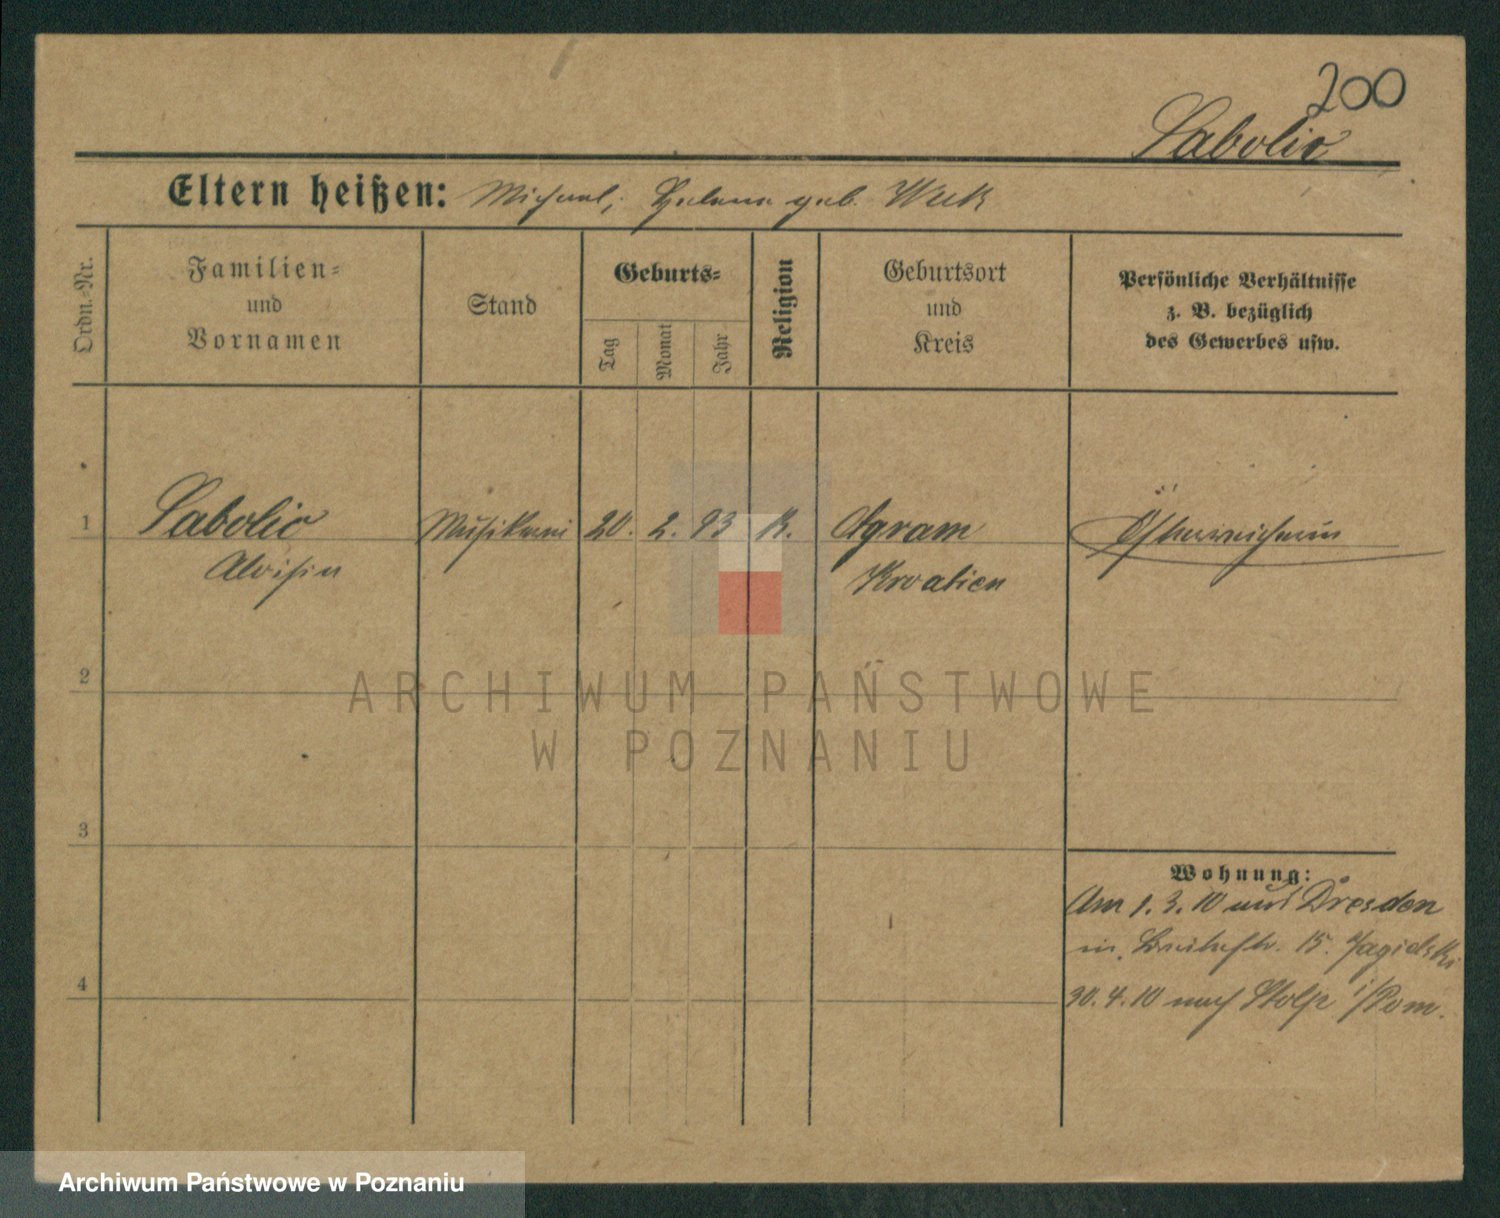 200
Sabolic
Eltern heißen: Michael, Helena geb. Wuk
Ordn.-Nr.
Familien-
und
Vornamen
Stand
Geburts-
Tag
Monat
Jahr
Religion
Geburtsort
und
Kreis
Persönliche Verhältnisse
z. B. bezüglich
des Gewerbes usw.
1 Sabolic Musikerin 20. 2. 93 K. Agram Österreicherin
Aloisia Kroatien
2
ARCHIWUM PAŃSTWOWE
W POZNANIU
3
Wohnung:
Am 1. 3. 10 aus Dresden
in, Breitestr. 15. Jagielski
4
30. 4. 10 nach Stolp i/Pom.
Archiwum Państwowe w Poznaniu